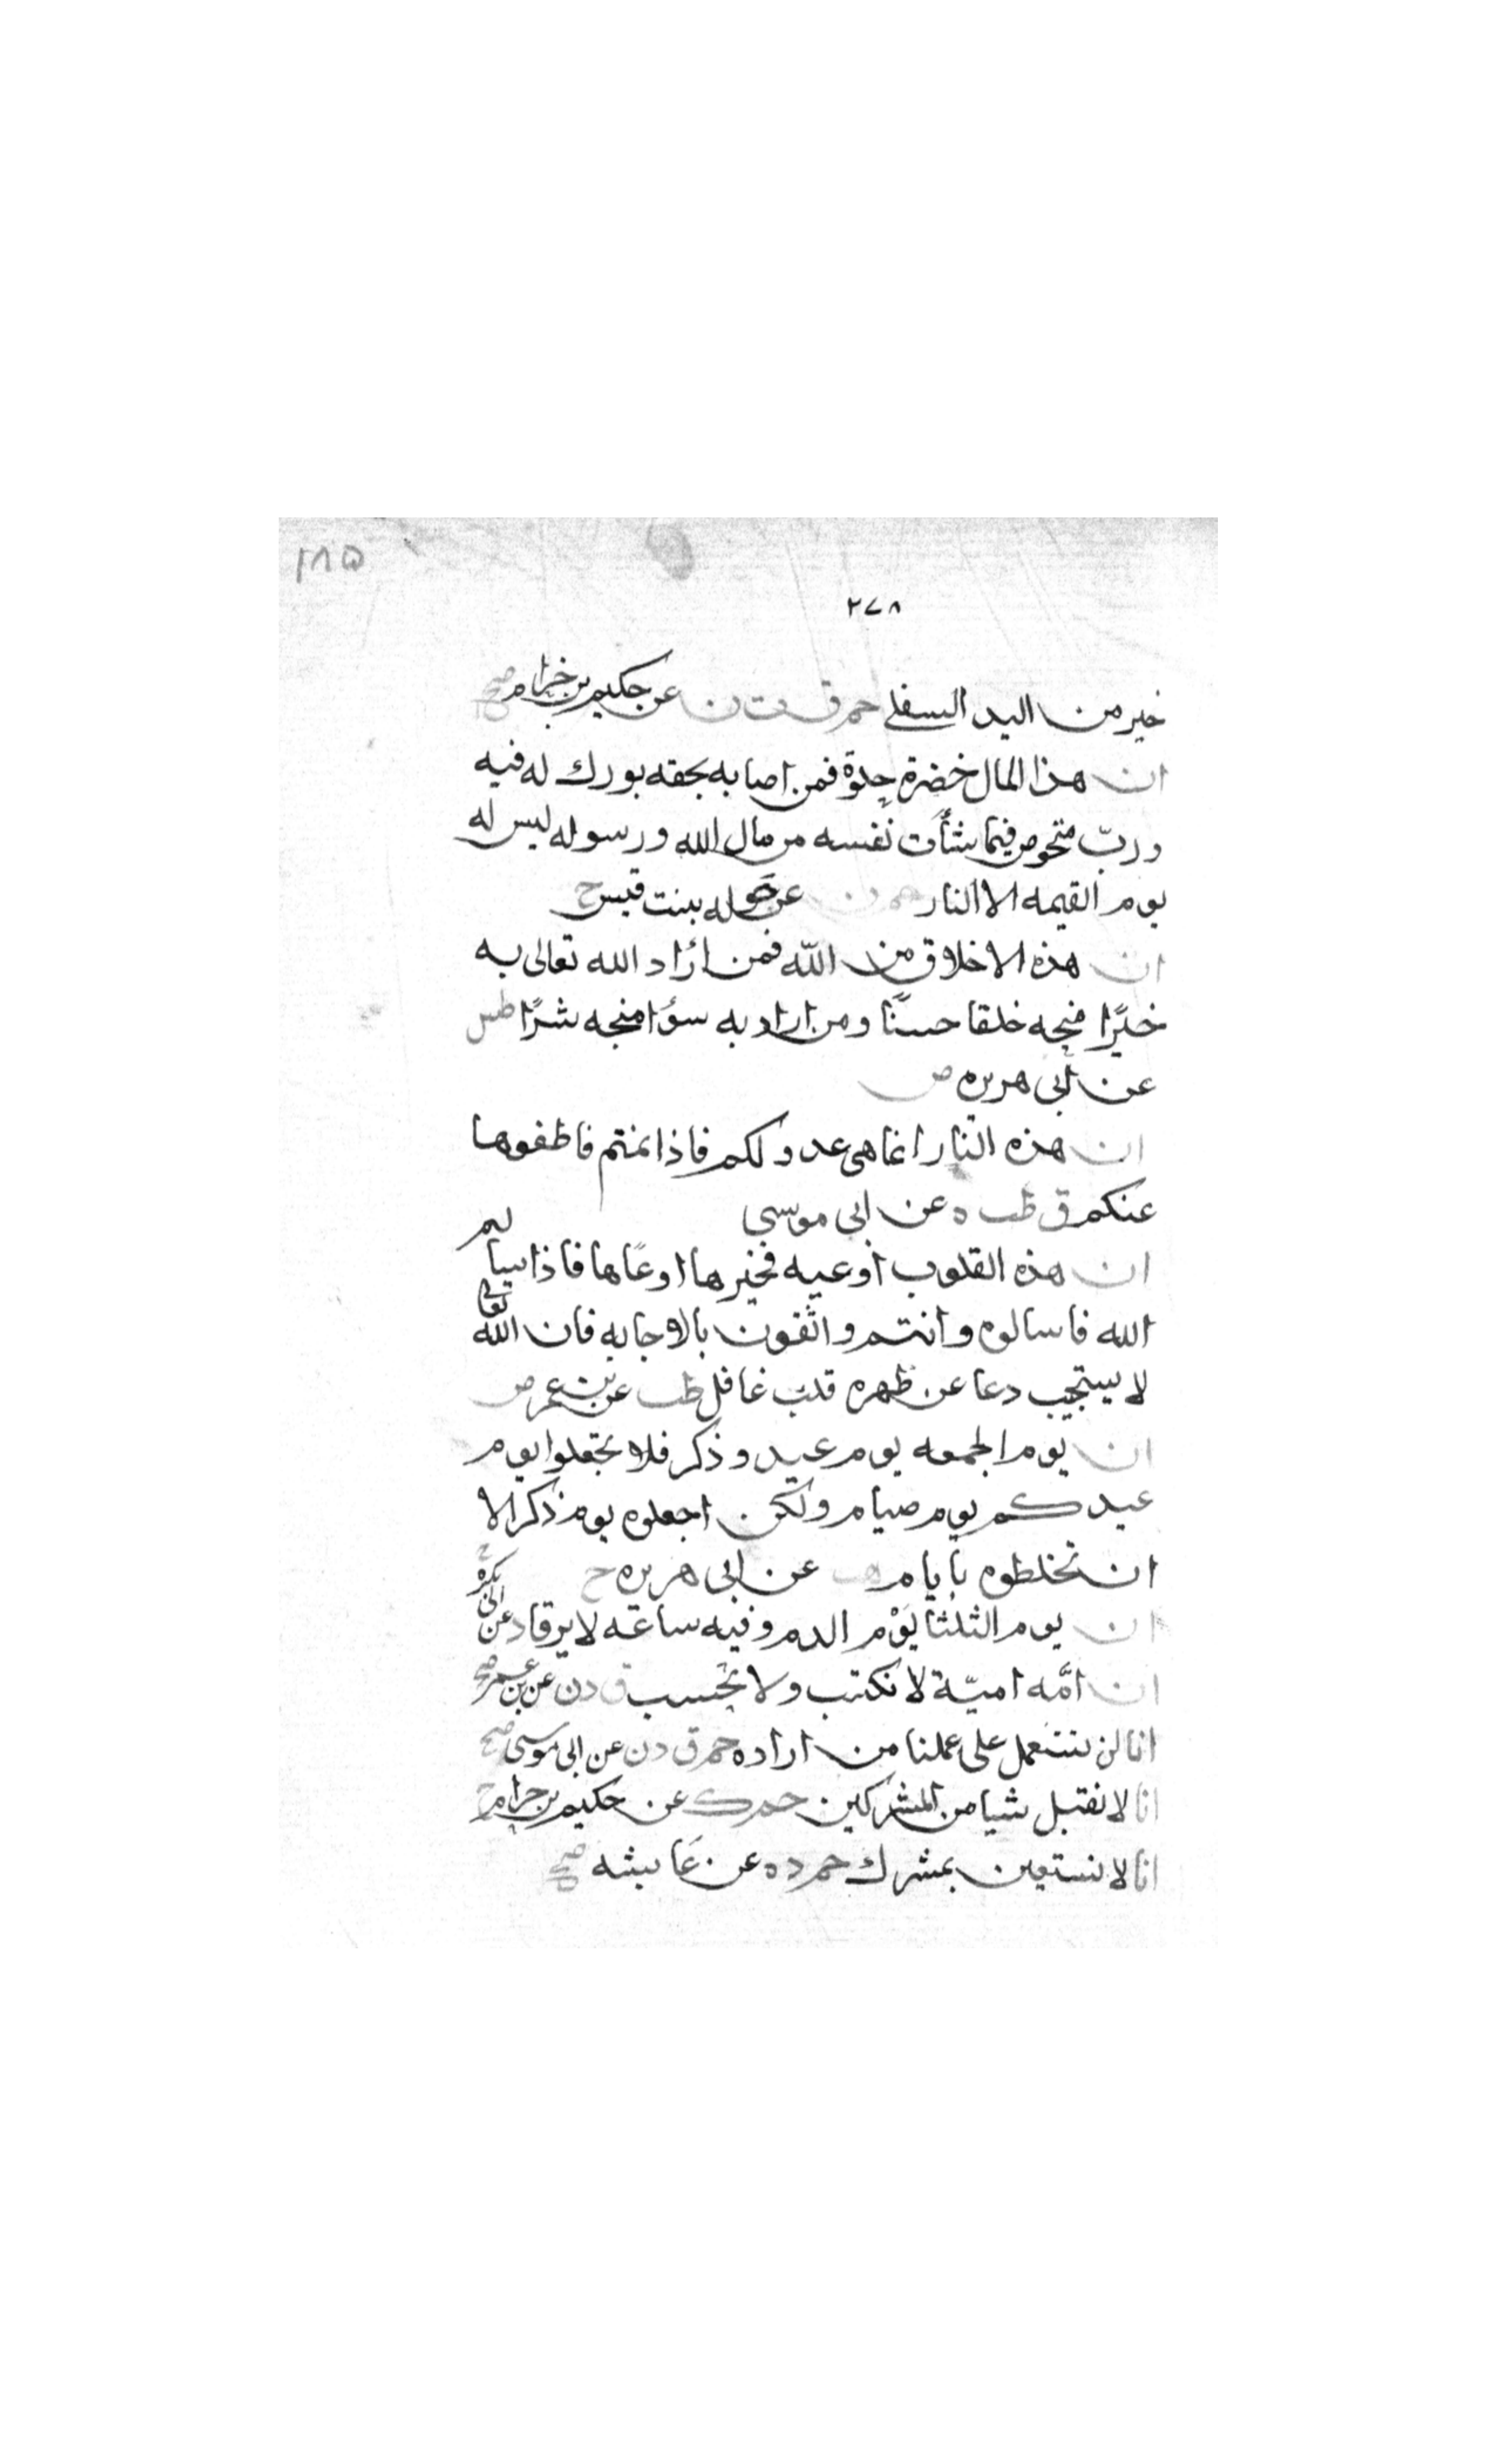 ١٨٥
٢٧٨
خير من اليد السفلى حم ق ت ن عن حكيم بن خزام صح
ان هذا المال خضرة حلوة فمن اصابه بحقه بورك له فيه
ورب متخوض فيما شأت نفسه من مال الله ورسوله ليس له
يوم القيمه الا النار حم ت عن خوله بنت قيس ح
ان هذه الاخلاق من الله فمن اراد الله تعالى به
خيرًا منحه خلقا حسنًا ومن اراد به سؤا منحه شرًا طس
عن أبى هريره ض
ان هذه النار انما هى عدو لكم فاذا نمتم فاطفوها
عنكم ق طب ه عن ابى موسى
ان هذه القلوب أوعيه فخيرها اوعاها فاذا سيالتم
الله فاسالوه وانتم واثقون بالاجابه فان الله تعالى
لا يستجيب دعا عن ظهره قلب غافل طب عن بن عمر ض
ان يوم الجمعه يوم عيد وذكر فلا تجعلوا يوم
عيدكم يوم صيام ولكن اجعلوه يوم ذكر الا
ان تخلطوه بايام هب عن ابى هريره ح
ان يوم الثلثا يَوْم الدم وفيه ساعه لا يرقا د عن ابى بكره
ان امّه اميّة لا نكتب ولا نحسب ق د ن عن بن عمر صح
انا لن نستعمل على عملنا من اراده حم ق د ن عن ابى موسى صح
انا لا نقتبل شيا من المشركين حم ك عن حكيم بن حزام
انا لا نستعين بمشرك حم د ه عن عايشه صح